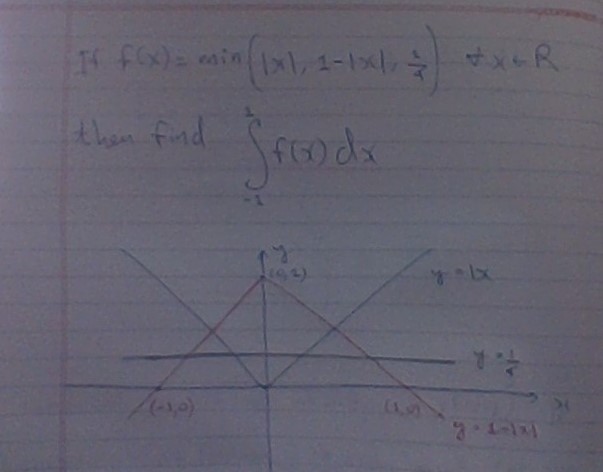 If f(x) = min(|x|, 1-|x|, 1/4) ∀ x ∈ R
then find ∫_{-1}^{1} f(x) dx
y
(0,1)
y = |x
y = 1/4
(-1,0)
(1,0)
x
y = 1-|x|